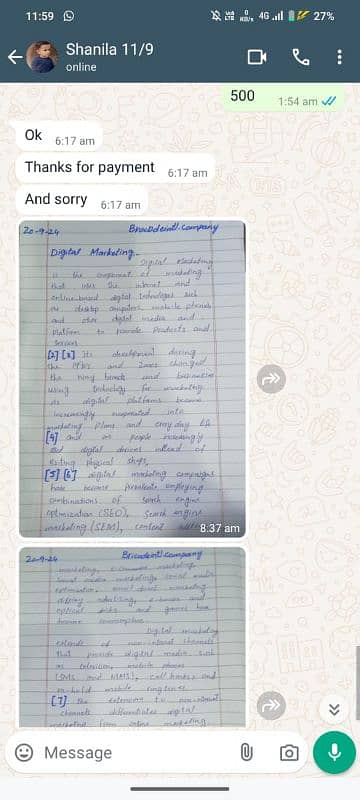 11:59
4G 27%
Shanila 11/9
online
500 1:54 am
Ok 6:17 am
Thanks for payment 6:17 am
And sorry 6:17 am
20-9-24
Digital Marketing
Digital Marketing
is the component of marketing
that uses the internet and
online-based digital technologies such
as desktop computers, mobile phones
and other digital media and
platform to promote products and
services
[2] [3] Its development during
the and changed
the way brands and businesses
using technology for marketing
As digital platforms became
increasingly into
marketing plans and every day life
[4] and as people increasingly
digital devices instead of
physical shops,
[5] [6] digital marketing campaigns
have become employing
combinations of search engine
optimization (SEO), search engine
marketing (SEM), content 8:37 am
marketing
social media marketing, social media
optimization marketing
display advertising
optical disks and games have
become
Digital marketing
extends to non-internet channels
that provide digital media such
as television, mobile phones
(SMS and MMS), call back, and
on-hold mobile ring tones.
[7] The extension to non-internet
channels differentiates digital
marketing from online marketing
Message